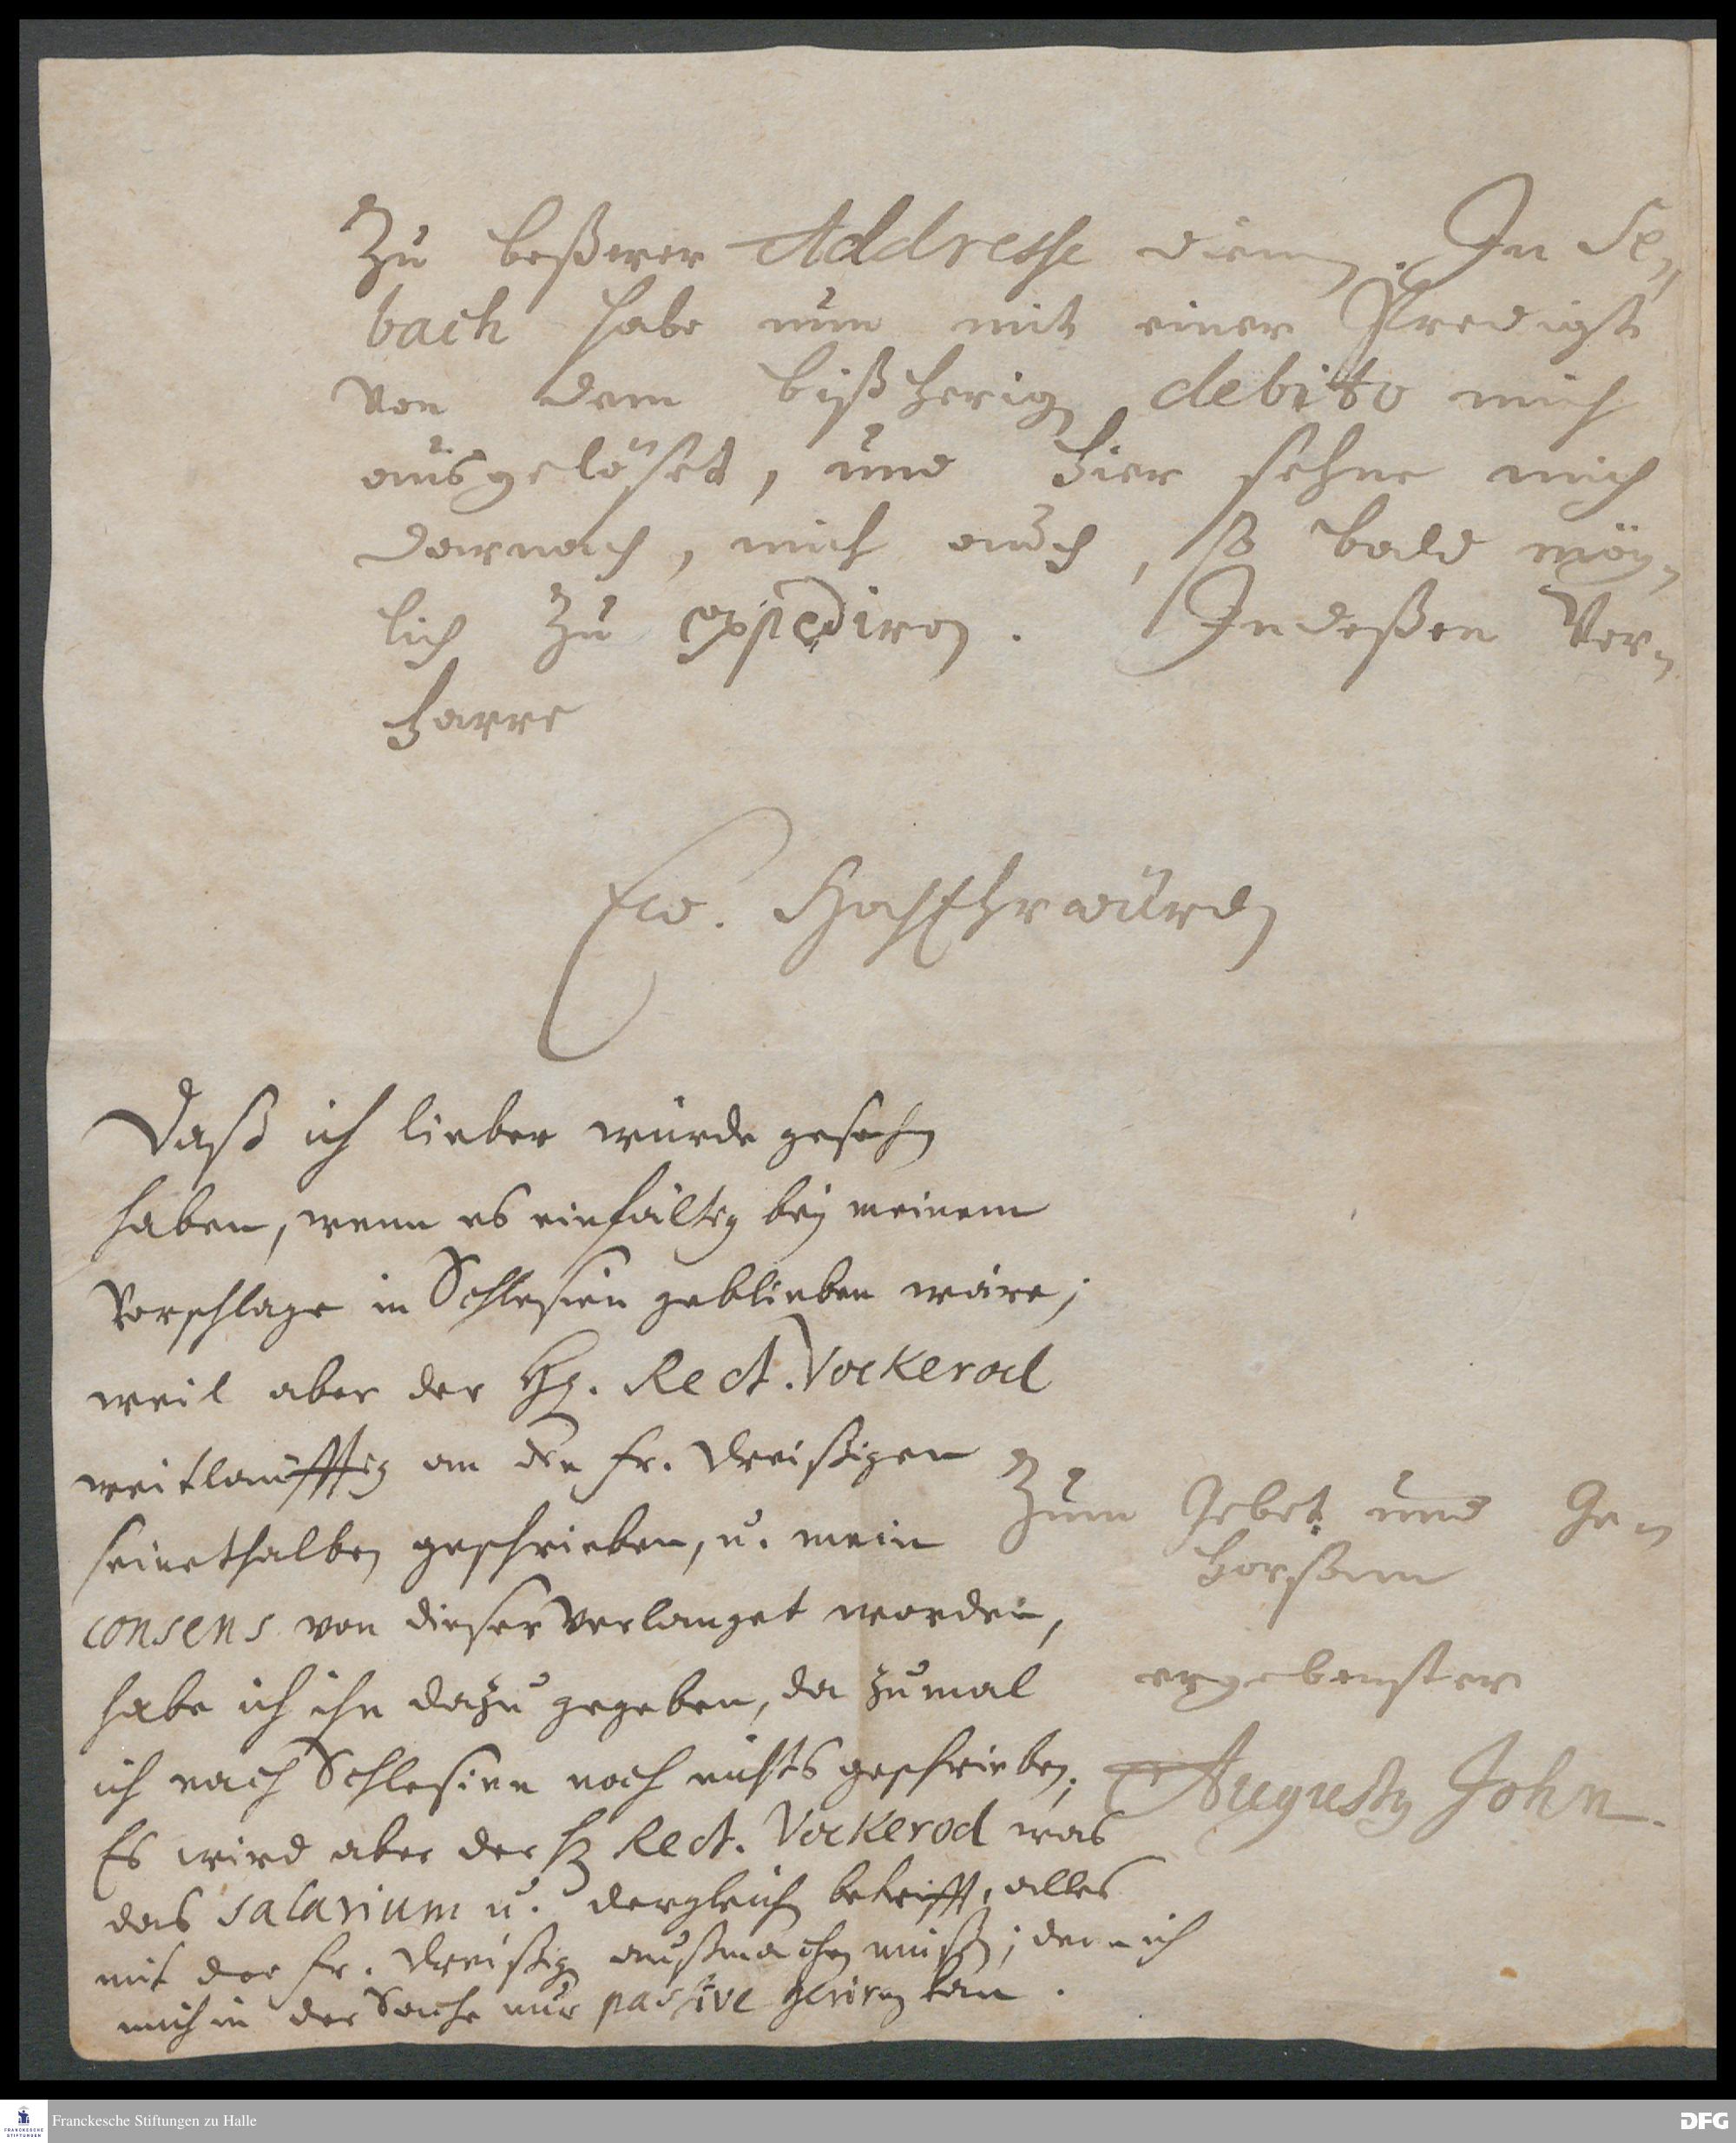 Zu beßerer Addresse dienen. In Se-
bach habe nun mit einer Predigt
von dem bißherigen debito mich
ausgelöset, und hier sehne mich
darnach, mich auch, so bald mög-
lich zu expediren. Indeßen ver-
harre
Ew. HochEhrwürden
Zum Gebet und Ge-
horsam
ergebenster
Augustus John.
Daß ich lieber würde gesehen
haben, wenn es einfältig bey meinem
Vorschlage in Schlesien geblieben wäre;
weil aber der Hr. Rect. Vockerod
weitläufftig an die Fr. Dreißigen
seinethalben geschrieben, u. mein
consens von dieser verlanget worden,
habe ich ihn dazu gegeben, da zumal
ich nach Schlesien noch nichts geschrieben.
Es wird aber der H. Rect. Vockerod was
das salarium u. dergleichen betrifft, alles
mit der Fr. Dreißigen außmachen müßen; denn ich
mich in der Sache nur passive geriren kan.
Franckesche Stiftungen zu Halle
FRANCKESCHE
STIFTUNGEN
DFG